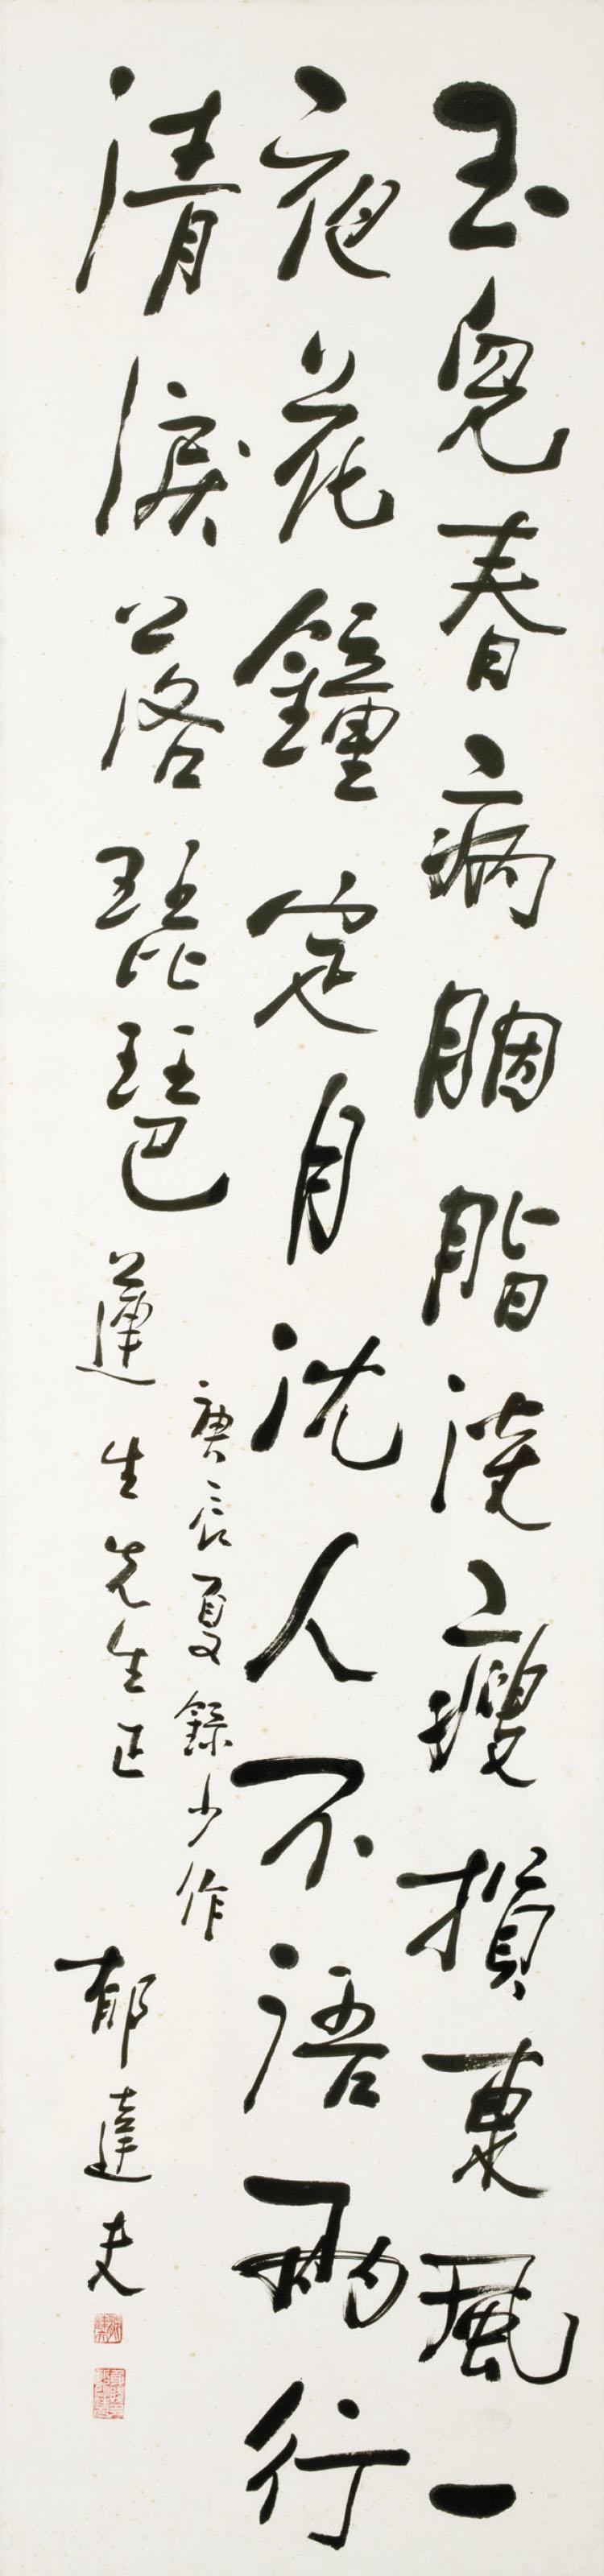 玉皃春病胭脂淡瘦損東風一
夜花鐘定月沈人不語兩行
清淚落琵琶
庚辰夏録少作
蓮生先生正
郁達夫